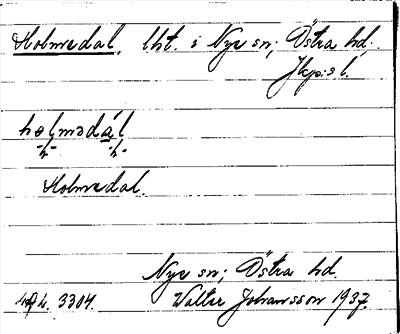 Holmedal, lht. i Nye sn; Östra hd.
Jkp:s l.
hǫlmədál
Holmedal.
Nye sn; Östra hd.
3304. Walter Johansson 1937.